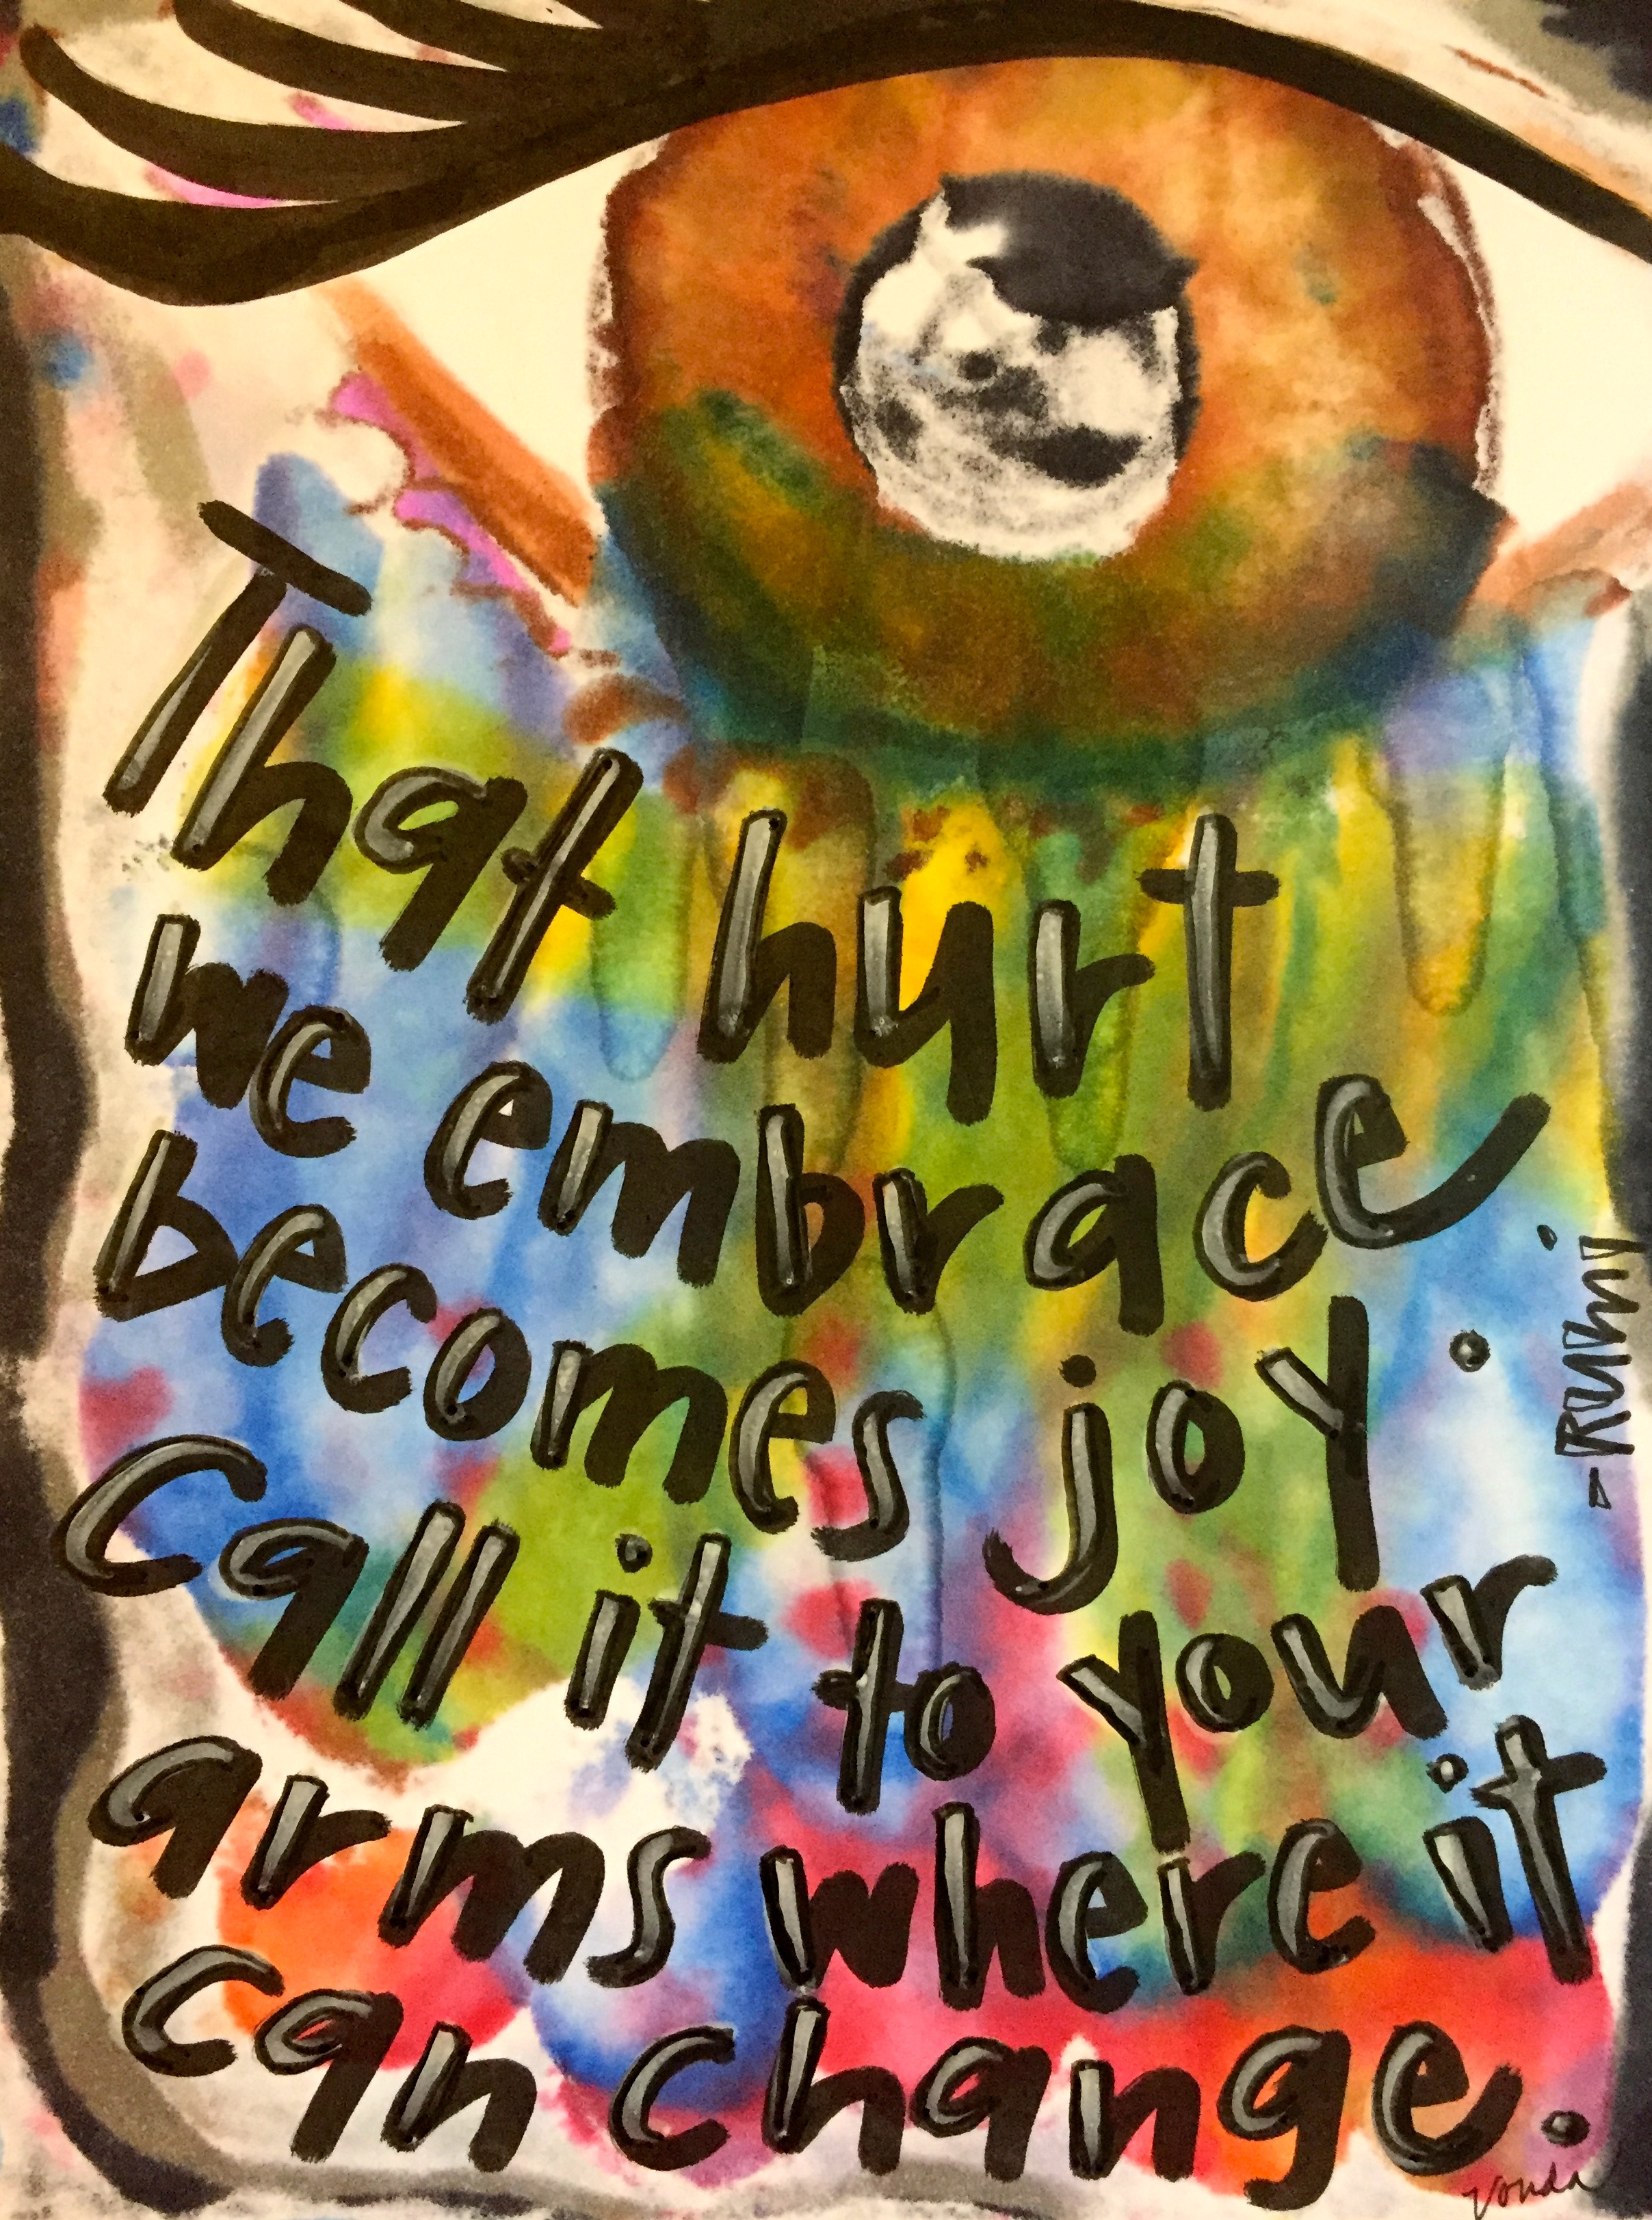 That hurt
we embrace
becomes joy.
Call it to your
arms where it
can change.
-Rumi
Vonda